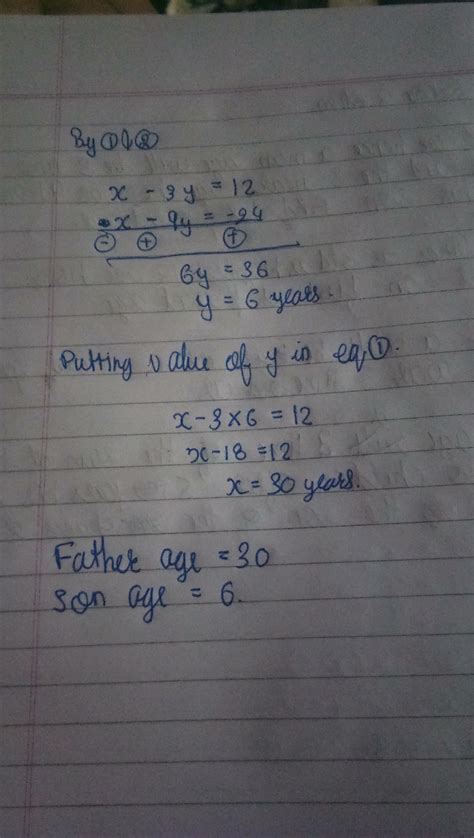 By ① & ②
x - 3y = 12
x - 9y = -24
⊖ ⊕ ⊕
6y = 36
y = 6 years.
Putting value of y in eq ①.
x - 3 × 6 = 12
x - 18 = 12
x = 30 years.
Father age = 30
son age = 6.